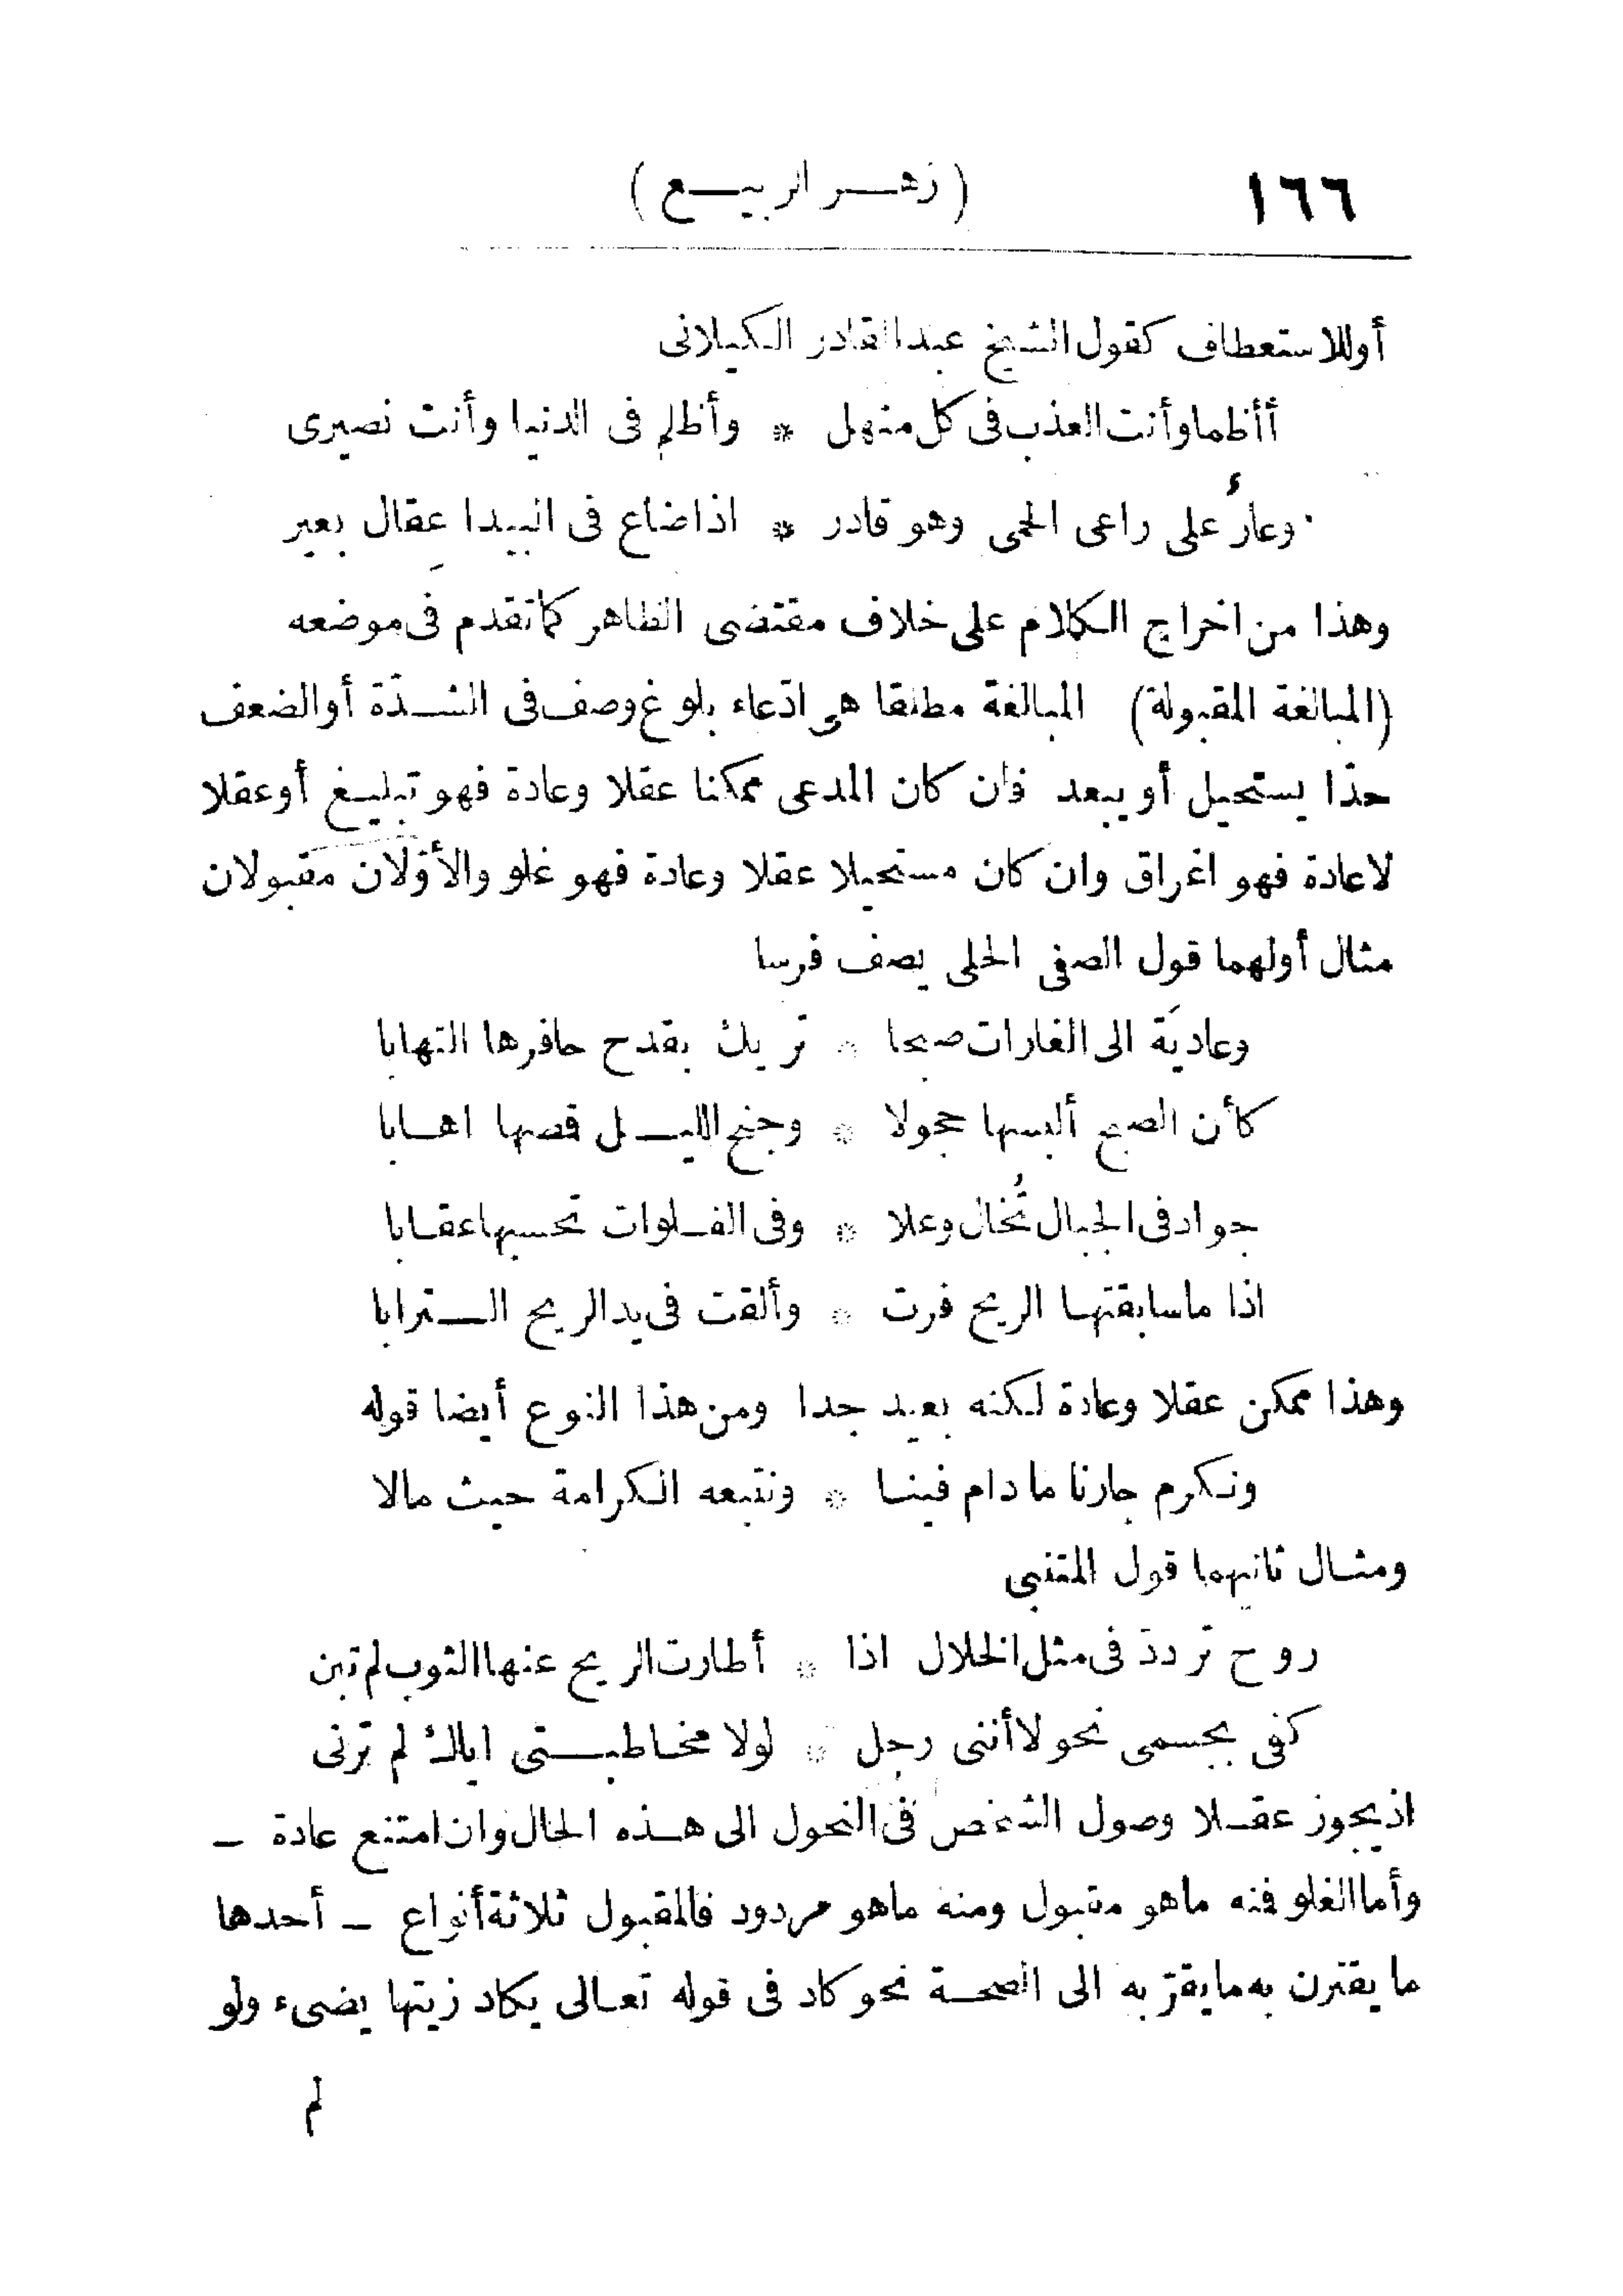 ١٦٦ (زهر الربيع)
أوللاستعطاف كقول الشيخ عبدالقادر الكيلانى
أأظما وأنت العذب فى كل منهل * وأظلم فى الدنيا وأنت نصيرى
وعارٌ على راعى الحمى وهو قادر * اذا ضاع فى البيدا عِقال بعير
وهذا من اخراج الكلام على خلاف مقتضى الظاهر كما تقدم فى موضعه
(المبالغة المقبولة) المبالغة مطلقا هى ادّعاء بلوغ وصف فى الشدّة أو الضعف
حدّا يستحيل أو يبعد فان كان المدعى ممكنا عقلا وعادة فهو تبليغ أو عقلا
لا عادة فهو اغراق وان كان مستحيلا عقلا وعادة فهو غلو والأوّلان مقبولان
مثال أولهما قول الصفى الحلى يصف فرسا
وعاديَة الى الغارات صبحا * تريك بقدح حافرها التهابا
كأن الصبح ألبسها حجولا * وجنح الليل قصها اهابا
جواد فى الجبال تُخال وعلا * وفى الفلوات تحسبها عقابا
اذا ما سابقتها الريح فرت * وألقت فى يد الريح الترابا
وهذا ممكن عقلا وعادة لكنه بعيد جدا ومن هذا النوع أيضا قوله
ونكرم جارنا ما دام فينا * ونتبعه الكرامة حيث مالا
ومثال ثانيهما قول المتنبى
روح تردد فى مثل الخلال اذا * أطارت الريح عنها الثوب لم تبن
كفى بجسمى نحولا أننى رجل * لولا مخاطبتى اياك لم ترنى
اذ يجوز عقلا وصول الشخص فى النحول الى هذه الحال وان امتنع عادة –
وأما الغلو فمنه ما هو مقبول ومنه ما هو مردود فالمقبول ثلاثة أنواع – أحدها
ما يقترن به ما يقرّبه الى الصحة نحو كاد فى قوله تعالى يكاد زيتها يضىء ولو
لم